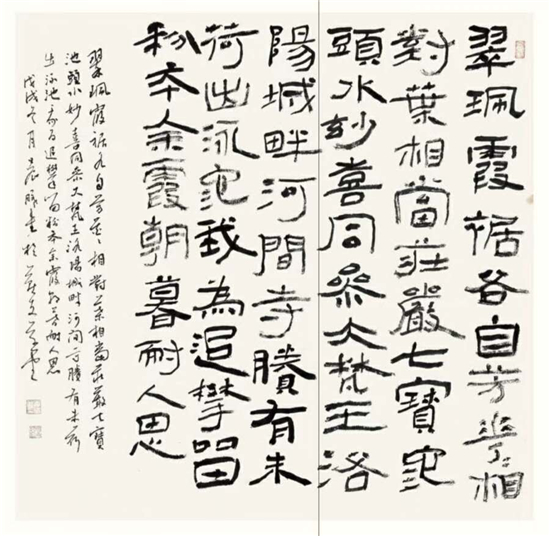 翠珮霞裾各自芳萼々相
對葉相當莊嚴七寶池
頭水妙喜同參大梵王洛
陽城畔河間寺賸有未
荷出泳池我為追攀留
粉本余霞朝暮耐人思
翠珮霞裾各自芳萼々相對葉相當莊嚴七寶
池頭水妙喜同參大梵王洛陽城畔河間寺賸有未荷
出泳池我為追攀留粉本余霞朝暮耐人思
戊戌月書於